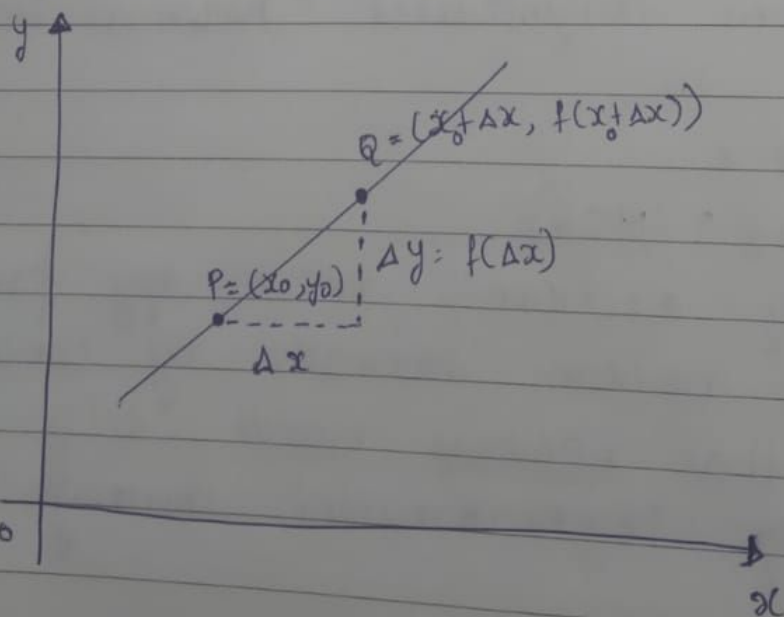 y
Q = (x₀+Δx, f(x₀+Δx))
Δy = f(Δx)
P = (x₀, y₀)
Δx
0
x